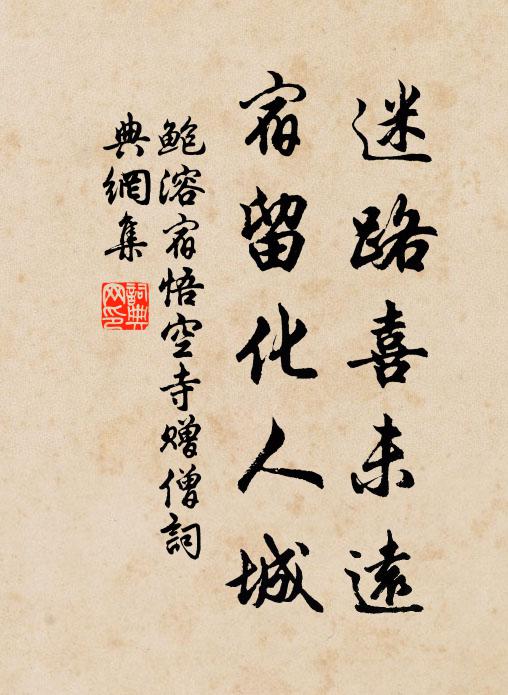 迷路喜未遠
宿留化人城
鮑溶宿悟空寺贈僧詞
典網集
詞典網印